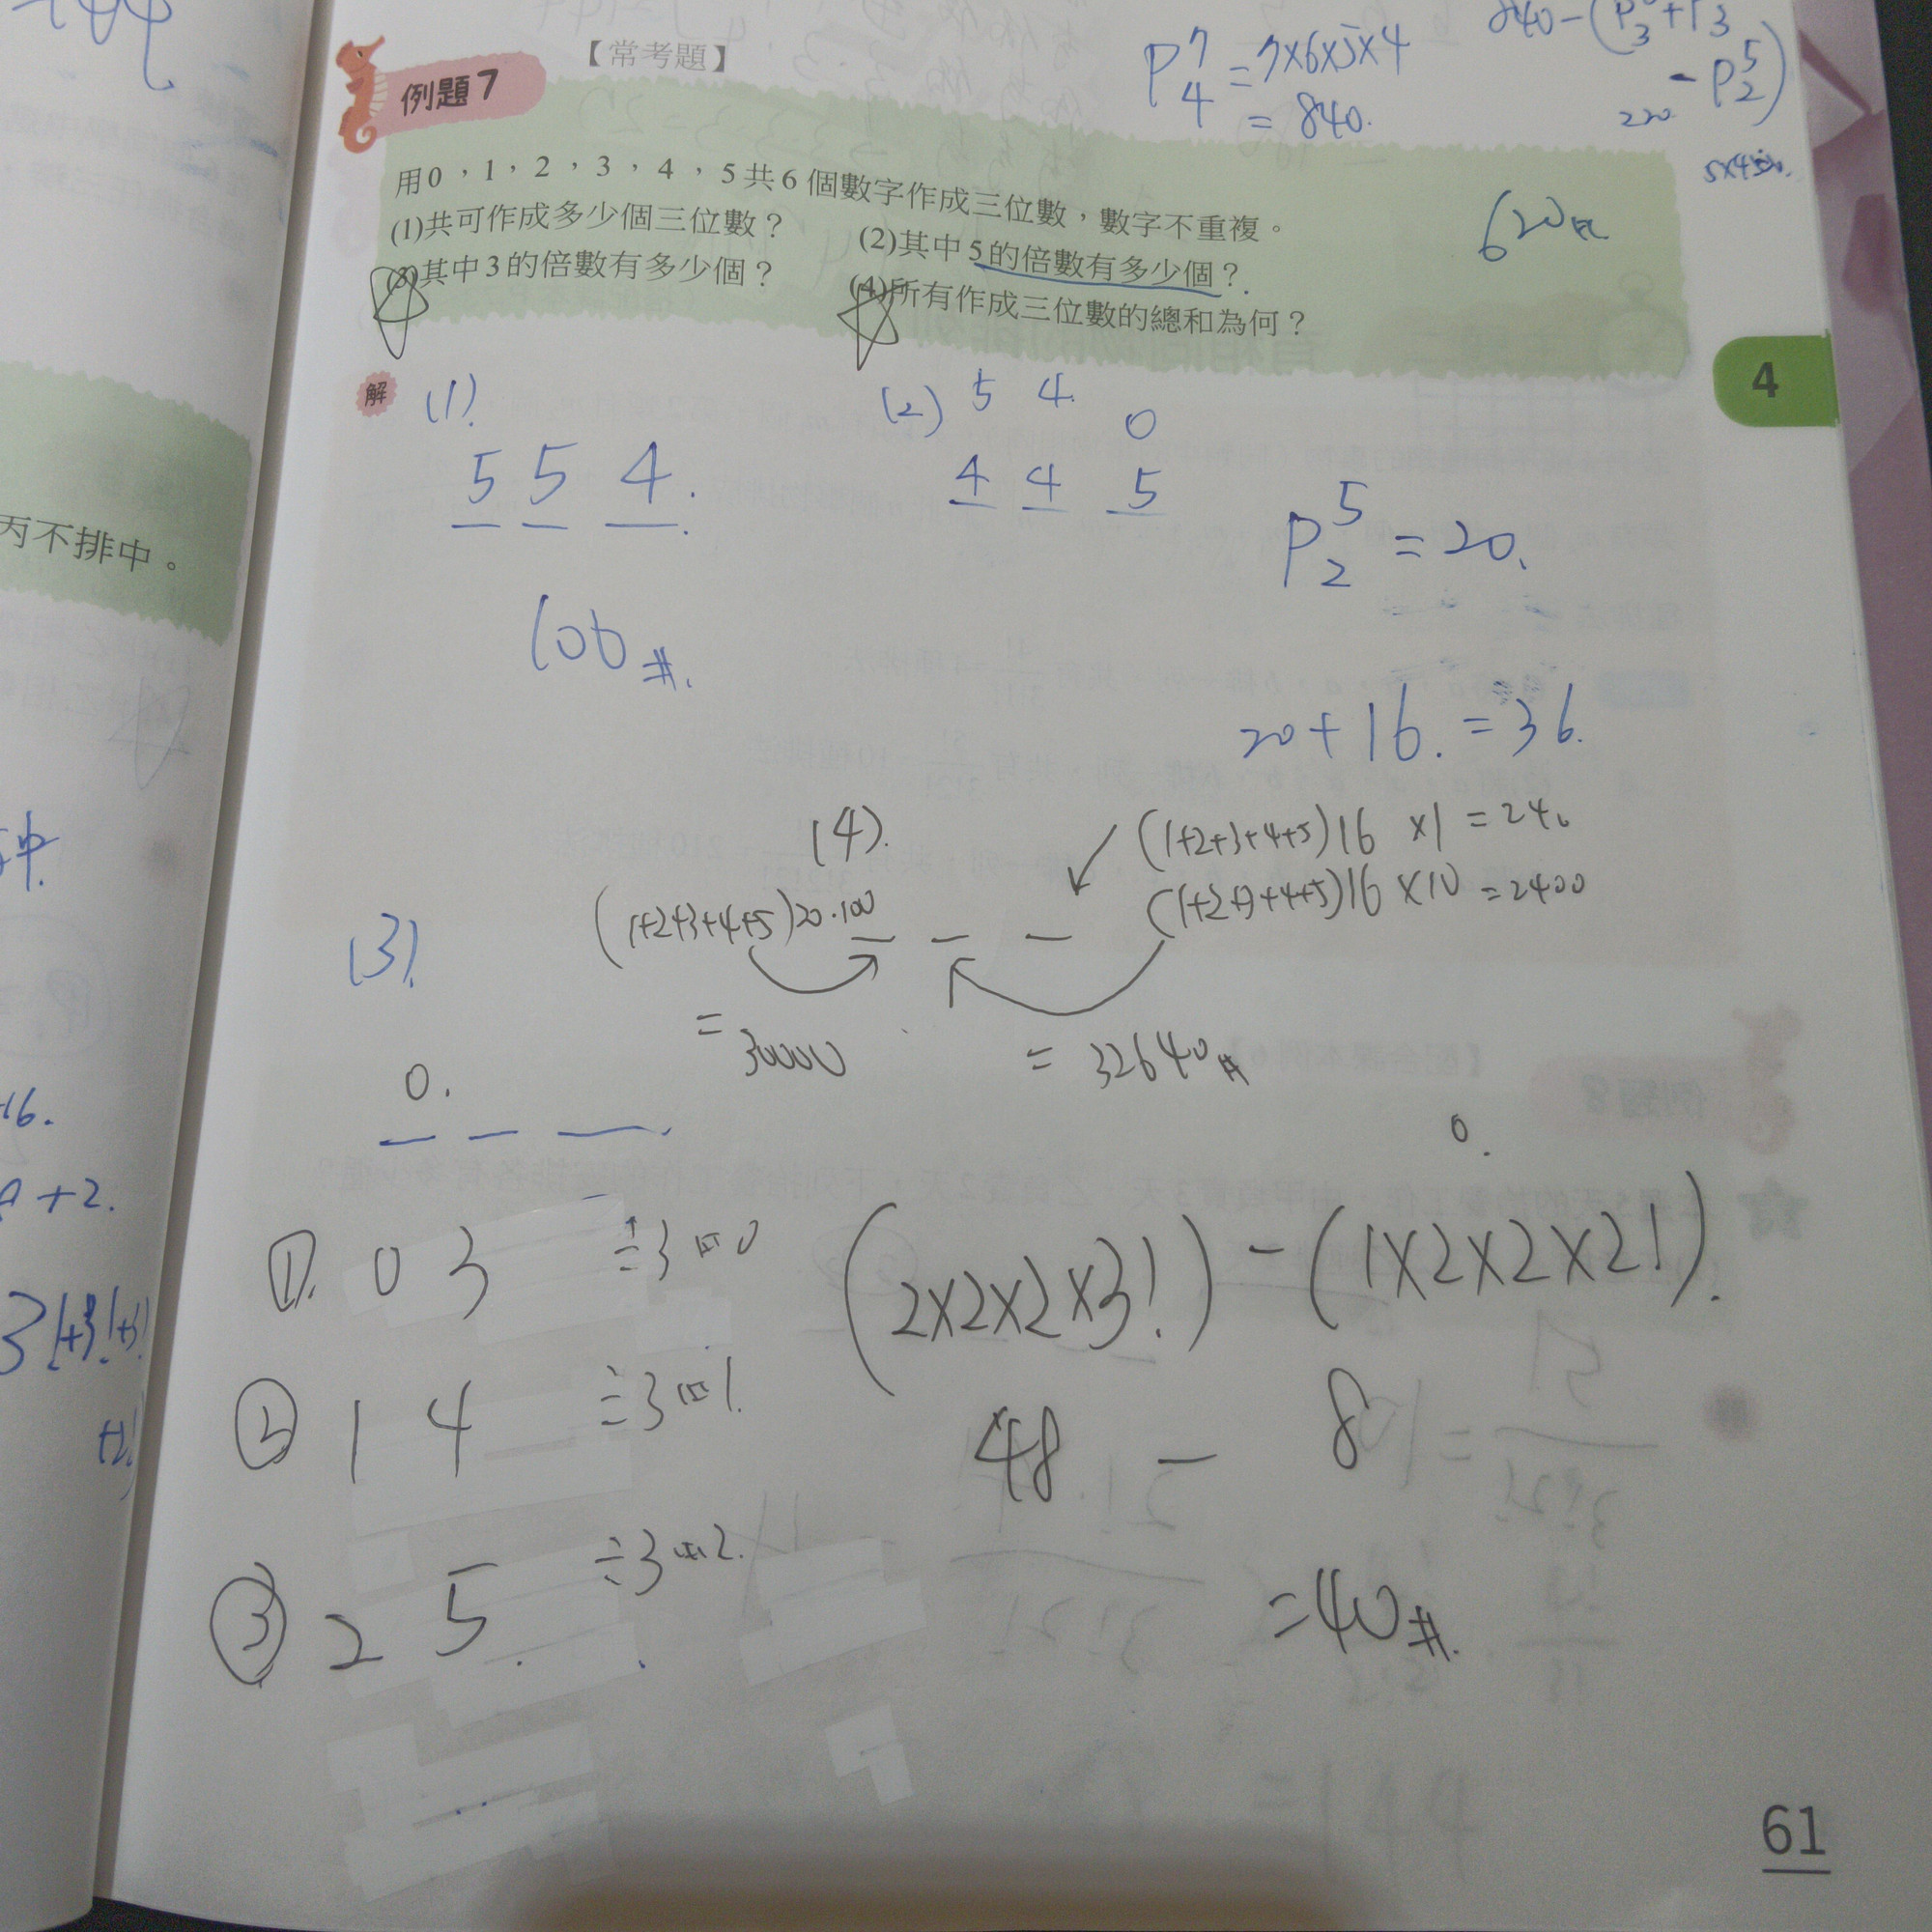 【常考題】
例題7
P⁷₄ = 7×6×5×4
= 840.
- P⁵₂)
220
5×4=20.
620#
用0，1，2，3，4，5共6個數字作成三位數，數字不重複。
(1)共可作成多少個三位數？
(2)其中5的倍數有多少個？
(3)其中3的倍數有多少個？
(4)所有作成三位數的總和為何？
4
解
(1)
5 5 4.
100#.
(2) 5 4 0
4 4 5
P⁵₂ = 20.
20+16.=36.
(4).
(1+2+3+4+5)16 ×1 = 240
(1+2+3+4+5)16 ×10 = 2400
(1+2+3+4+5)20·100
= 30000
= 32640#
(3).
0.
0.
①. 0 3 ÷3餘0
② 1 4 ÷3餘1.
③ 2 5. ÷3餘2.
(2×2×2×3!) - (1×2×2×2!).
48 - 8
=40#.
丙不排中。
中.
16.
+2.
3!+3!+3!
61